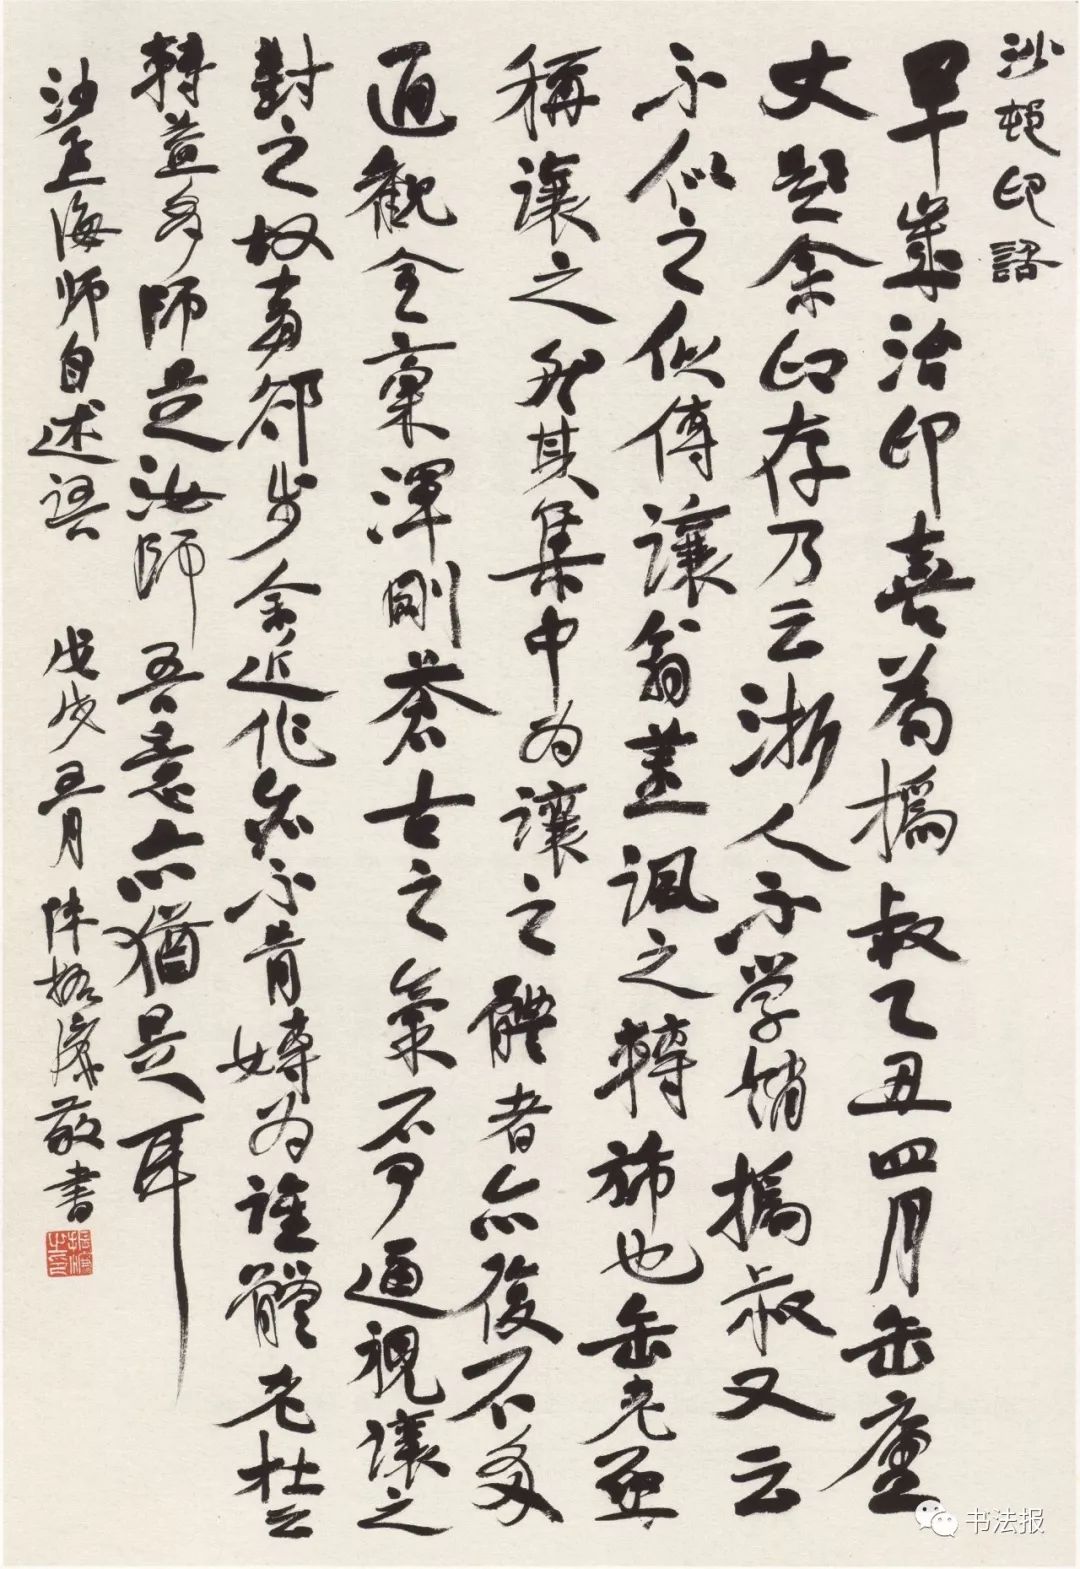 沙邨印話
早歲治印喜為撝叔乙丑四月缶廬
丈題余印存乃云浙人不学媚撝叔又云
不似之似傳讓翁蓋諷之轉師也缶老亟
稱讓之然其集中为讓之體者亦復不多
通觀全稾渾剛蒼古之氣不可逼視讓之
對之故當卻步余近作亦不肯專为誰體老杜云
轉益多師是汝師吾意亦猶是耳
沙孟海师自述語 戊戌五月 陈振濂敬書
书法报